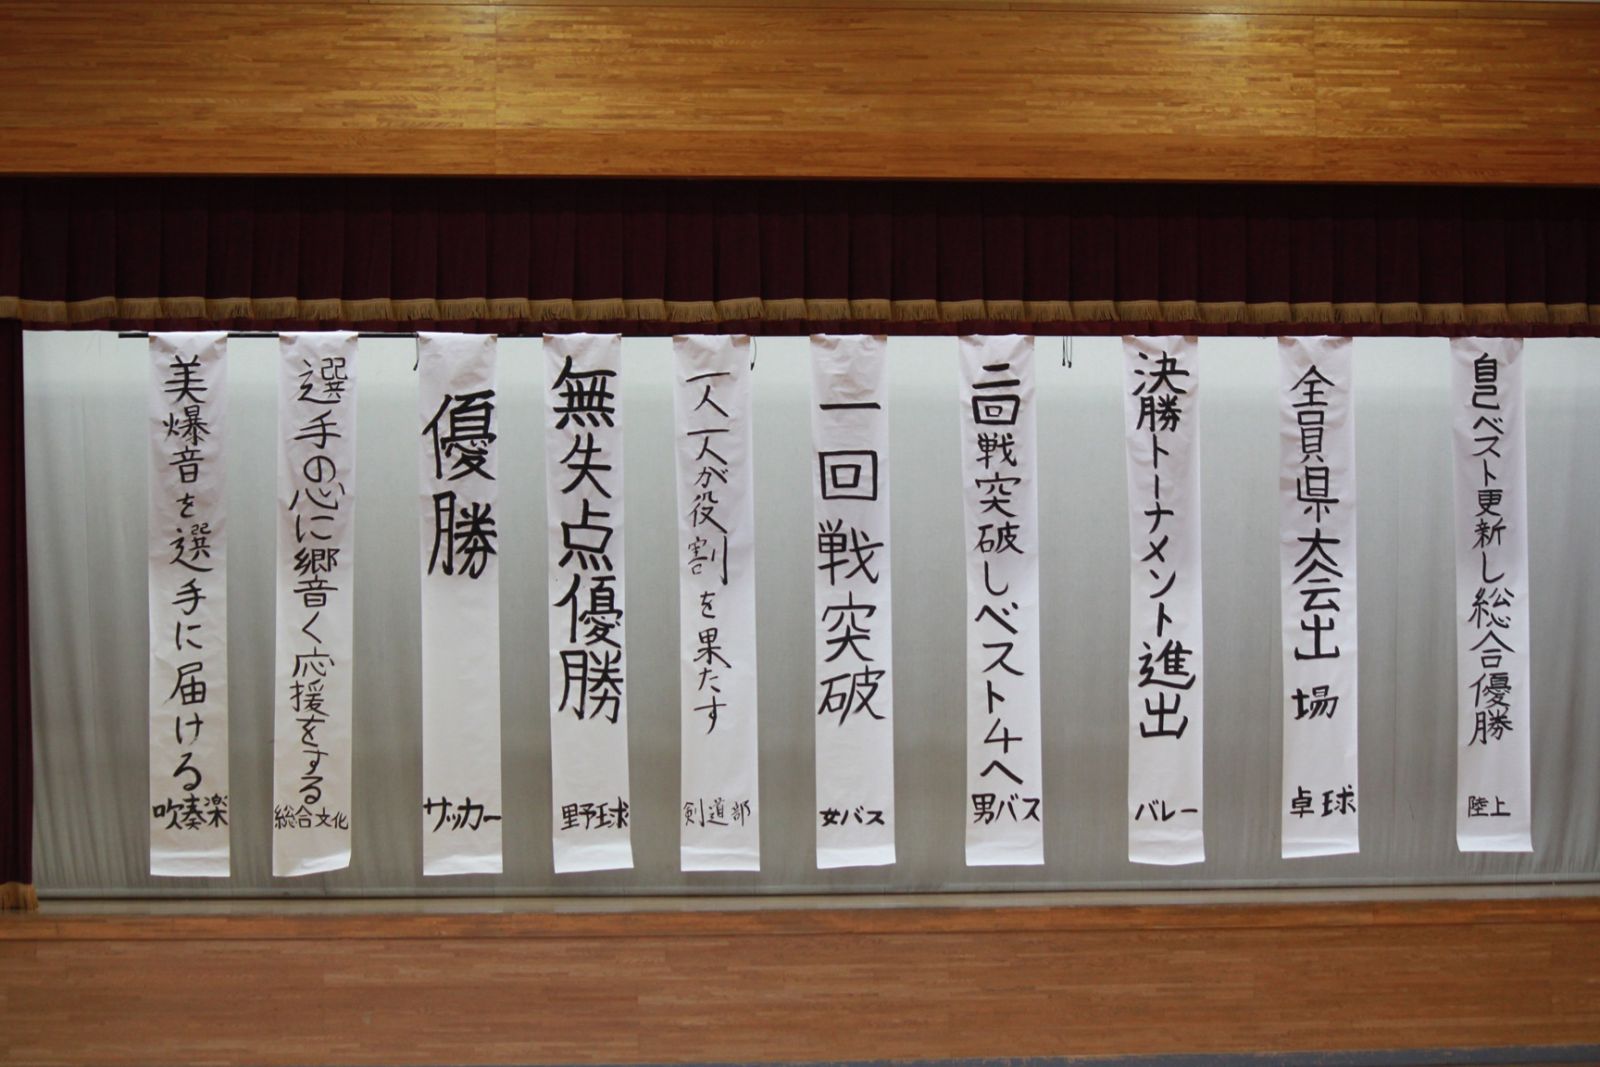 自己ベスト更新し総合優勝
陸上
全員県大会出場
卓球
決勝トーナメント進出
バレー
二回戦突破しベスト4へ
男バス
一回戦突破
女バス
一人一人が役割を果たす
剣道部
無失点優勝
野球
優勝
サッカー
選手の心に響く応援をする
総合文化
美爆音を選手に届ける
吹奏楽